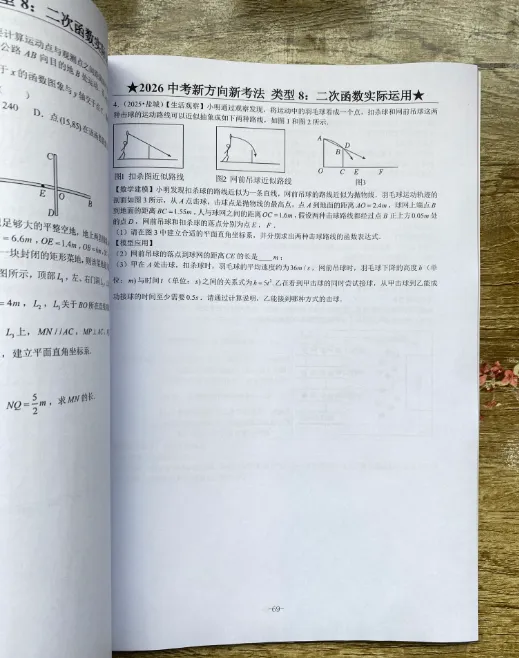 型 8：二次函数实
计算运动点与观测点之间
公路 AB 向目的地 B 处
于 x 的函数图象与 y 轴交于
240 D. 点(15,85)在该函数
C
E O B
D
足够大的平整空地，地上
= 6.6m，OE = 1.4m，OB
一块封闭的矩形菜地，
图所示，顶部 L₁，左、右
= 4m，L₂，L₃ 关于 BO 所在
L₃ 上，MN // AC，MP
，建立平面直角坐标系.
NQ = 5/2 m，求 MN 的长.
★2026 中考新方向新考法 类型 8：二次函数实际运用★
4.（2025•盐城）【生活观察】小明通过观察发现，将运动中的羽毛球看成一个点，扣杀球和网前吊球这两
种击球的运动路线可以近似抽象成如下两种路线，如图 1 和图 2 所示.
A B D
C
O C E F
图1 扣杀图近似路线
图2 网前吊球近似路线
图3
【数学建模】小明发现扣杀球的路线近似为一条直线，网前吊球的路线近似为抛物线. 羽毛球运动轨迹的
截面如图 3 所示，从 A 点击球，击球点是抛物线的最高点，点 A 到地面的距离 AO = 2.4m，球网上端点 B
到地面的距离 BC = 1.55m，人与球网之间的距离 OC = 1.6m，假设两种击球路线都经过点 B 正上方 0.05m 处
的点 D，网前吊球和扣杀球的落点分别为点 E，F.
（1）请在图 3 中建立合适的平面直角坐标系，并分别求出两种击球路线的函数表达式.
【模型应用】
（2）网前吊球的落点到球网的距离 CE 的长是____m；
（3）甲在 A 处击球，扣杀球时，羽毛球的平均速度为 36m/s，网前吊球时，羽毛球下落的高度 h（单
位：m）与时间 t（单位：s）之间的关系式为 h = 5t². 乙在看到甲击球的同时尝试接球，从甲击球到乙能成
功接球的时间至少需要 0.5s，请通过计算说明，乙能接到哪种方式的击球.
-69-